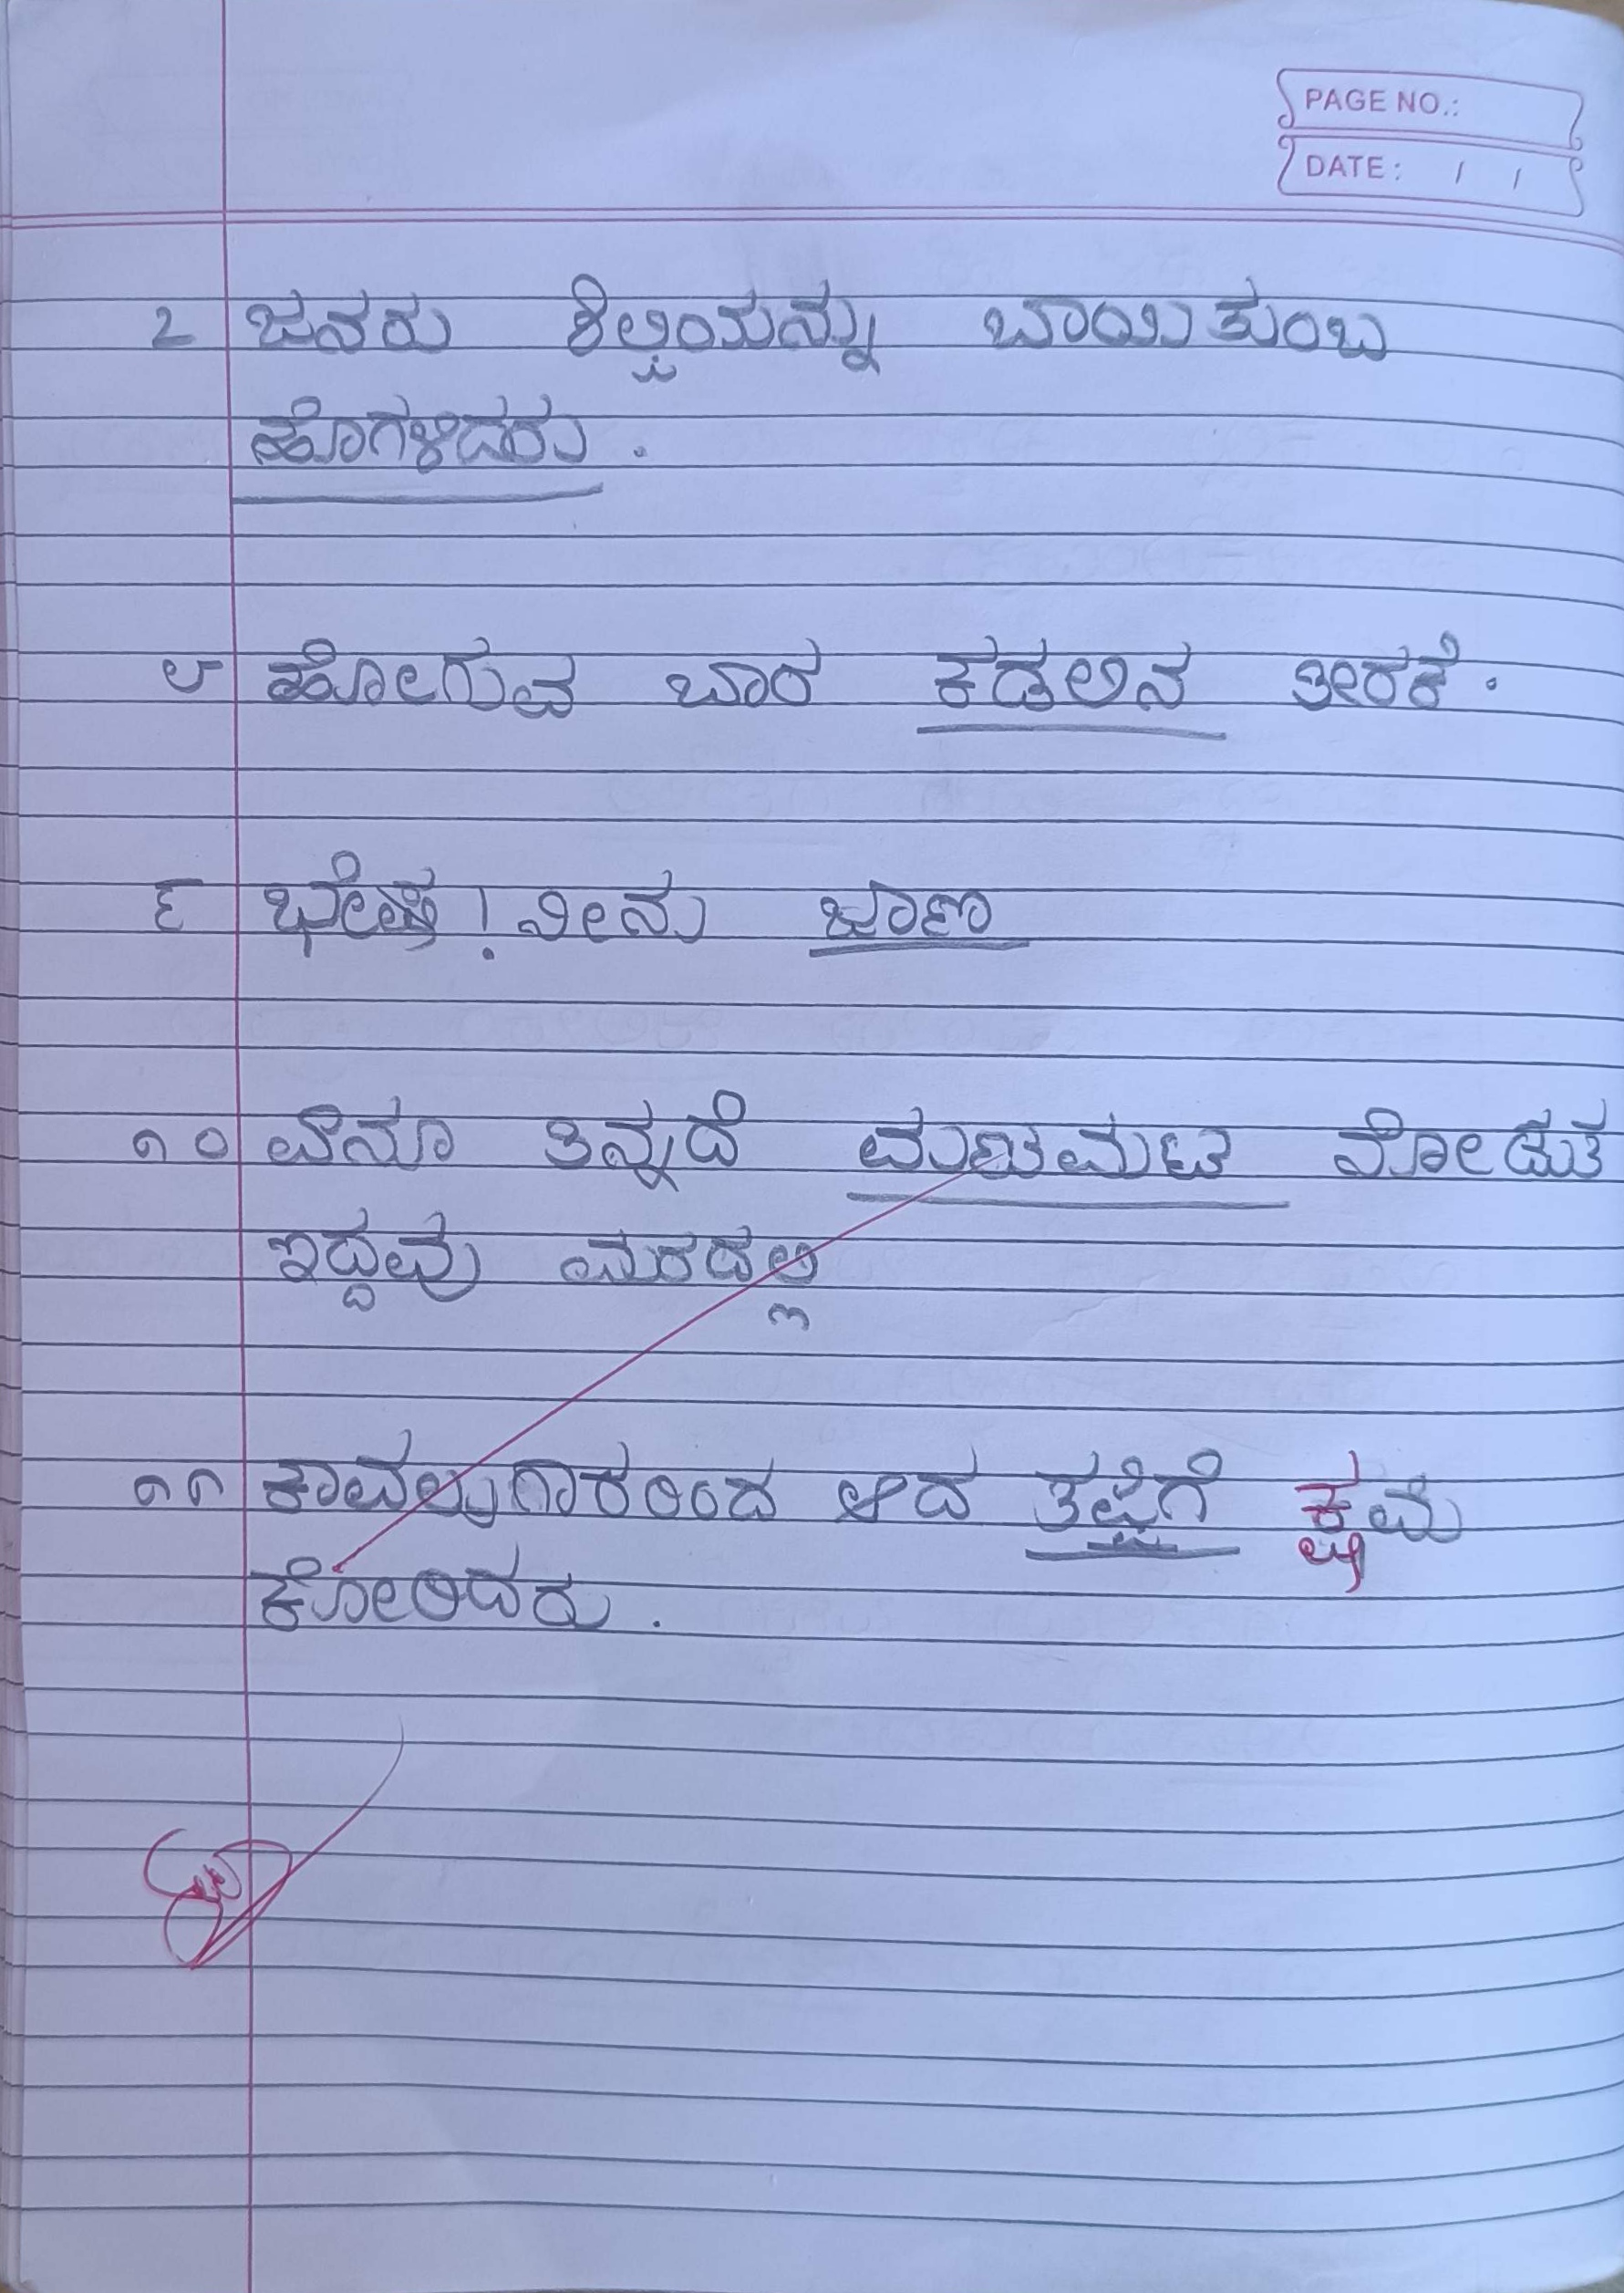 PAGE NO.:
DATE: / /
೭ ಜನರು ಶಿಲ್ಪಿಯನ್ನು ಬಾಯಿತುಂಬ
ಹೊಗಳಿದರು .
೮ ಹೋಗುವ ಬಾರ ಕಡಲಿನ ತೀರಕೆ .
೯ ಭೇಷ ! ನೀನು ಜಾಣ
೧೦ ಏನೂ ತಿನ್ನದೆ ಮಟಮಟ ನೋಡುತ
ಇದ್ದವು ಮರದಲ್ಲಿ
೧೧ ಕಾವಲುಗಾರರಿಂದ ಆದ ತಪ್ಪಿಗೆ ಕ್ಷಮೆ
ಕೋರಿದರು .